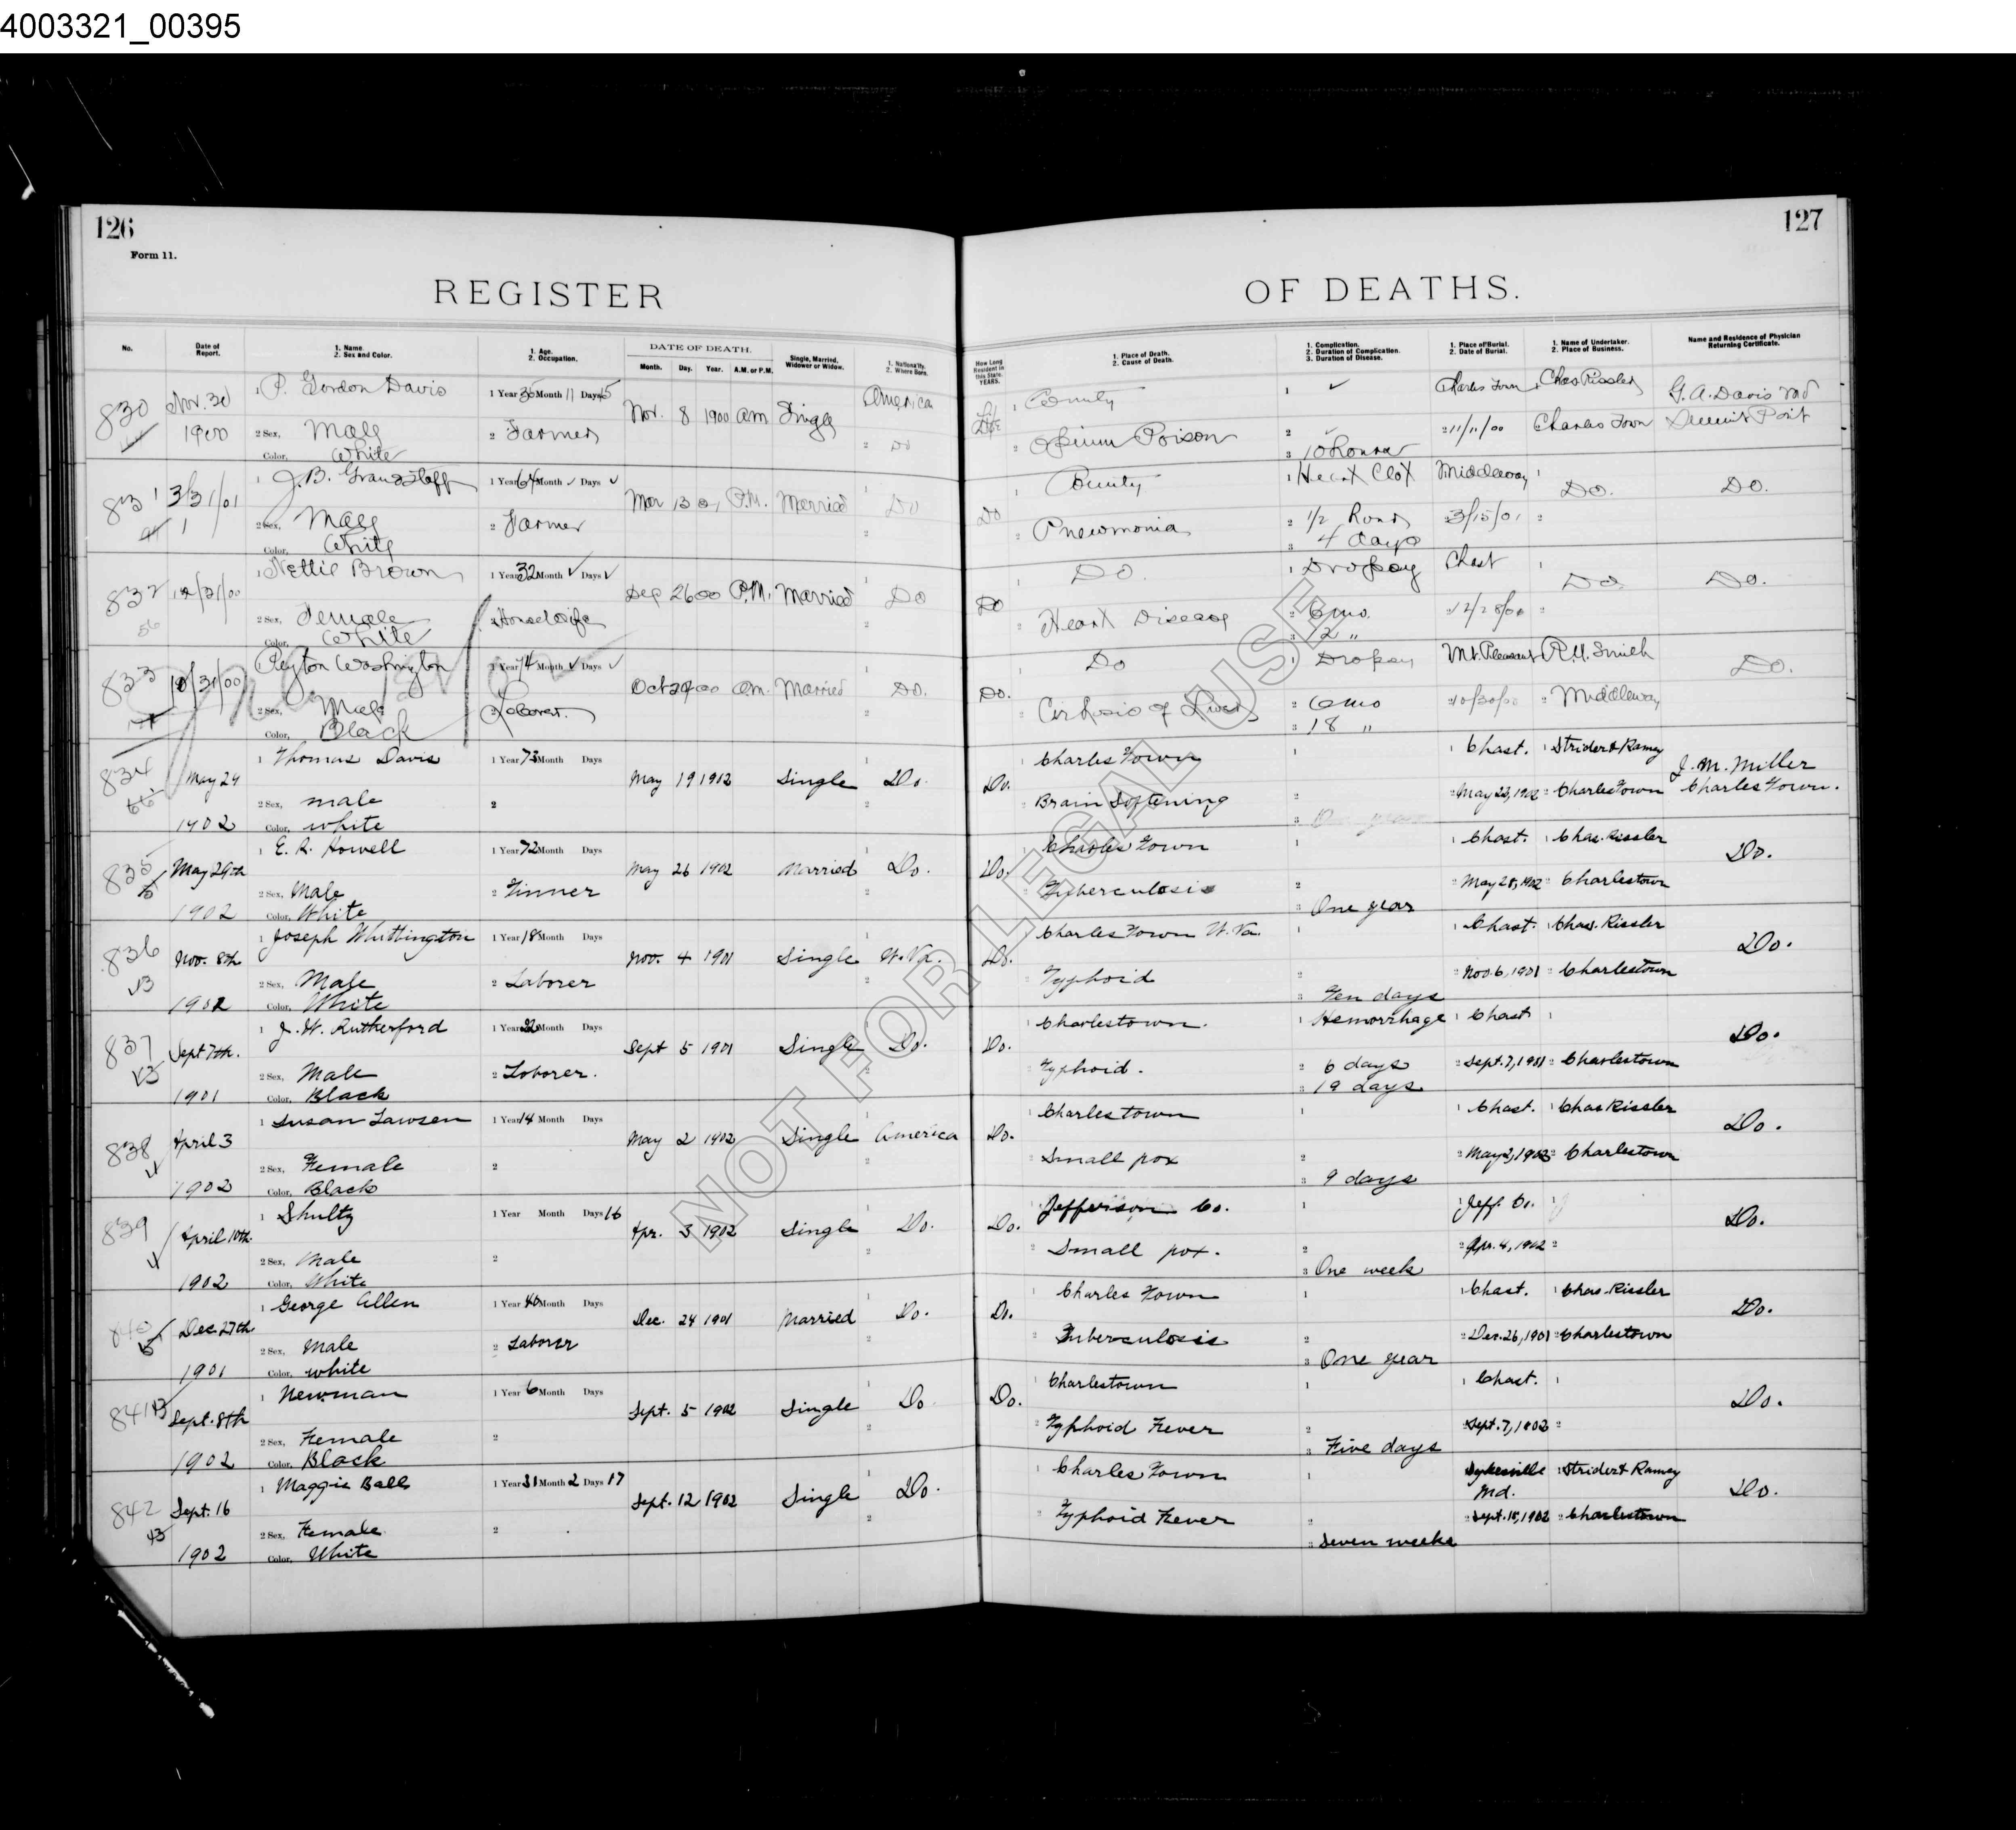 4003321_00395
126
127
Form 11.
REGISTER OF DEATHS.
No.
Date of Report.
1. Name.
2. Sex and Color.
1. Age.
2. Occupation.
DATE OF DEATH.
Month. Day. Year. A.M. or P.M.
Single, Married, Widower or Widow.
1. Nationality.
2. Where Born.
How Long Resident in this State. YEARS.
1. Place of Death.
2. Cause of Death.
1. Complication.
2. Duration of Complication.
3. Duration of Disease.
1. Place of Burial.
2. Date of Burial.
1. Name of Undertaker.
2. Place of Business.
Name and Residence of Physician Returning Certificate.
830 Nov. 30 1 P. Gordon Davis 1 Year 35 Month 11 Days Nov. 8 1900 am Single America Life 1 County 1 ✓ Charles Town Chas Rissler G. A. Davis md
1900 2 Sex, Male 2 Farmer 2 Do 2 Opium Poison 2 ✓ 2 11/11/00 Charles Town Summit Point
Color, White 3 10 hours
831 3/31/01 1 J. B. 1 Year 64 Month ✓ Days ✓ Mar 13 01 P.M. Married Do Do 1 County 1 Heart Clot Middleway 1 Do. Do.
2 Sex, Male 2 Farmer 2 2 Pneumonia 2 1/2 hours 3/15/01 2
Color, White 3 4 days
832 12/31/00 1 Nettie Brown 1 Year 32 Month ✓ Days ✓ Dec 26 00 P.M. Married 1 Do Do 1 Do. 1 Dropsy Chast 1 Do. Do.
2 Sex, Female 2 Housewife 2 2 Heart Disease 2 6 mo. 2 12/28/00 2
Color, White 3 2 "
833 10/31/00 Peyton Washington 1 Year 74 Month ✓ Days ✓ Oct 29 00 am. Married 1 Do. Do. 1 Do 1 Dropsy Mt. Pleasant R. U. Smith Do.
2 Sex, Male 2 Laborer. 2 2 Cirhosis of Liver 2 6 mo 2 10/30/00 2 Middleway
Color, Black 3 18 "
834 May 24 1 Thomas Davis 1 Year 73 Month Days May 19 1902 Single 1 Do. Do. 1 Charles Town 1 1 Chast. 1 Strider & Ramey J. M. Miller
66 2 Sex, male 2 2 2 Brain Softening 2 2 May 1902 2 Charles Town Charles Town.
1902 Color, white 3 One year
835 May 29th 1 E. R. Howell 1 Year 72 Month Days May 26 1902 Married 1 Do. Do. 1 Charles Town 1 1 Chast. 1 Chas. Rissler Do.
2 Sex, Male 2 Tinner 2 2 Tuberculosis 2 2 May 28, 1902 2 Charlestown
1902 Color, White 3 One year
836 Nov. 8th 1 Joseph Whittington 1 Year 18 Month Days Nov. 4 1901 Single 1 W. Va. Do. 1 Charles Town W. Va. 1 1 Chast. 1 Chas. Rissler Do.
2 Sex, Male 2 Laborer 2 2 Typhoid 2 2 Nov. 6, 1901 2 Charlestown
Color, White 3 Ten days
837 Sept 7th. 1 J. W. Rutherford 1 Year Month Days Sept 5 1901 Single 1 Do. Do. 1 Charlestown. 1 Hemorrhage 1 Chast 1 Do.
2 Sex, Male 2 Laborer. 2 2 Typhoid. 2 6 days 2 Sept. 7, 1901 2 Charlestown
1901 Color, Black 3 19 days
838 April 3 1 Susan Lawson 1 Year 14 Month Days May 2 1902 Single 1 America Do. 1 Charlestown 1 1 Chast. 1 Chas Rissler Do.
2 Sex, Female 2 2 2 Small pox 2 2 May 2, 2 Charlestown
Color, Black 3 9 days
839 April 10th. 1 Shultz 1 Year Month Days 16 Apr. 3 1902 Single 1 Do. Do. 1 Jefferson Co. 1 1 Jeff. Co. 1 Do.
2 Sex, Male 2 2 2 Small pox. 2 2 Apr. 4, 1902 2
1902 Color, White 3 One week
840 Dec. 27th. 1 George Allen 1 Year 40 Month Days Dec. 24 1901 Married 1 Do. Do. 1 Charles Town 1 1 Chast. 1 Chas. Rissler Do.
2 Sex, Male 2 Laborer 2 2 Tuberculosis 2 2 Dec. 26, 1901 2 Charlestown
1901 Color, white 3 One year
841 Sept. 8th 1 Newman 1 Year 6 Month Days Sept. 5 1902 Single 1 Do Do. 1 Charlestown 1 1 Chast. 1 Do.
2 Sex, Female 2 2 2 Typhoid Fever 2 2 Sept. 7, 2
1902 Color, Black 3 Five days
842 Sept. 16 1 Maggie Ball 1 Year 31 Month 2 Days 17 Sept. 12 1902 Single 1 Do. 1 Charles Town 1 Sykesville Md. 1 Strider & Ramey Do.
2 Sex, Female 2 2 2 Typhoid Fever 2 2 Sept. 15, 1902 2 Charlestown
1902 Color, White 3 Seven weeks
NOT FOR LEGAL USE